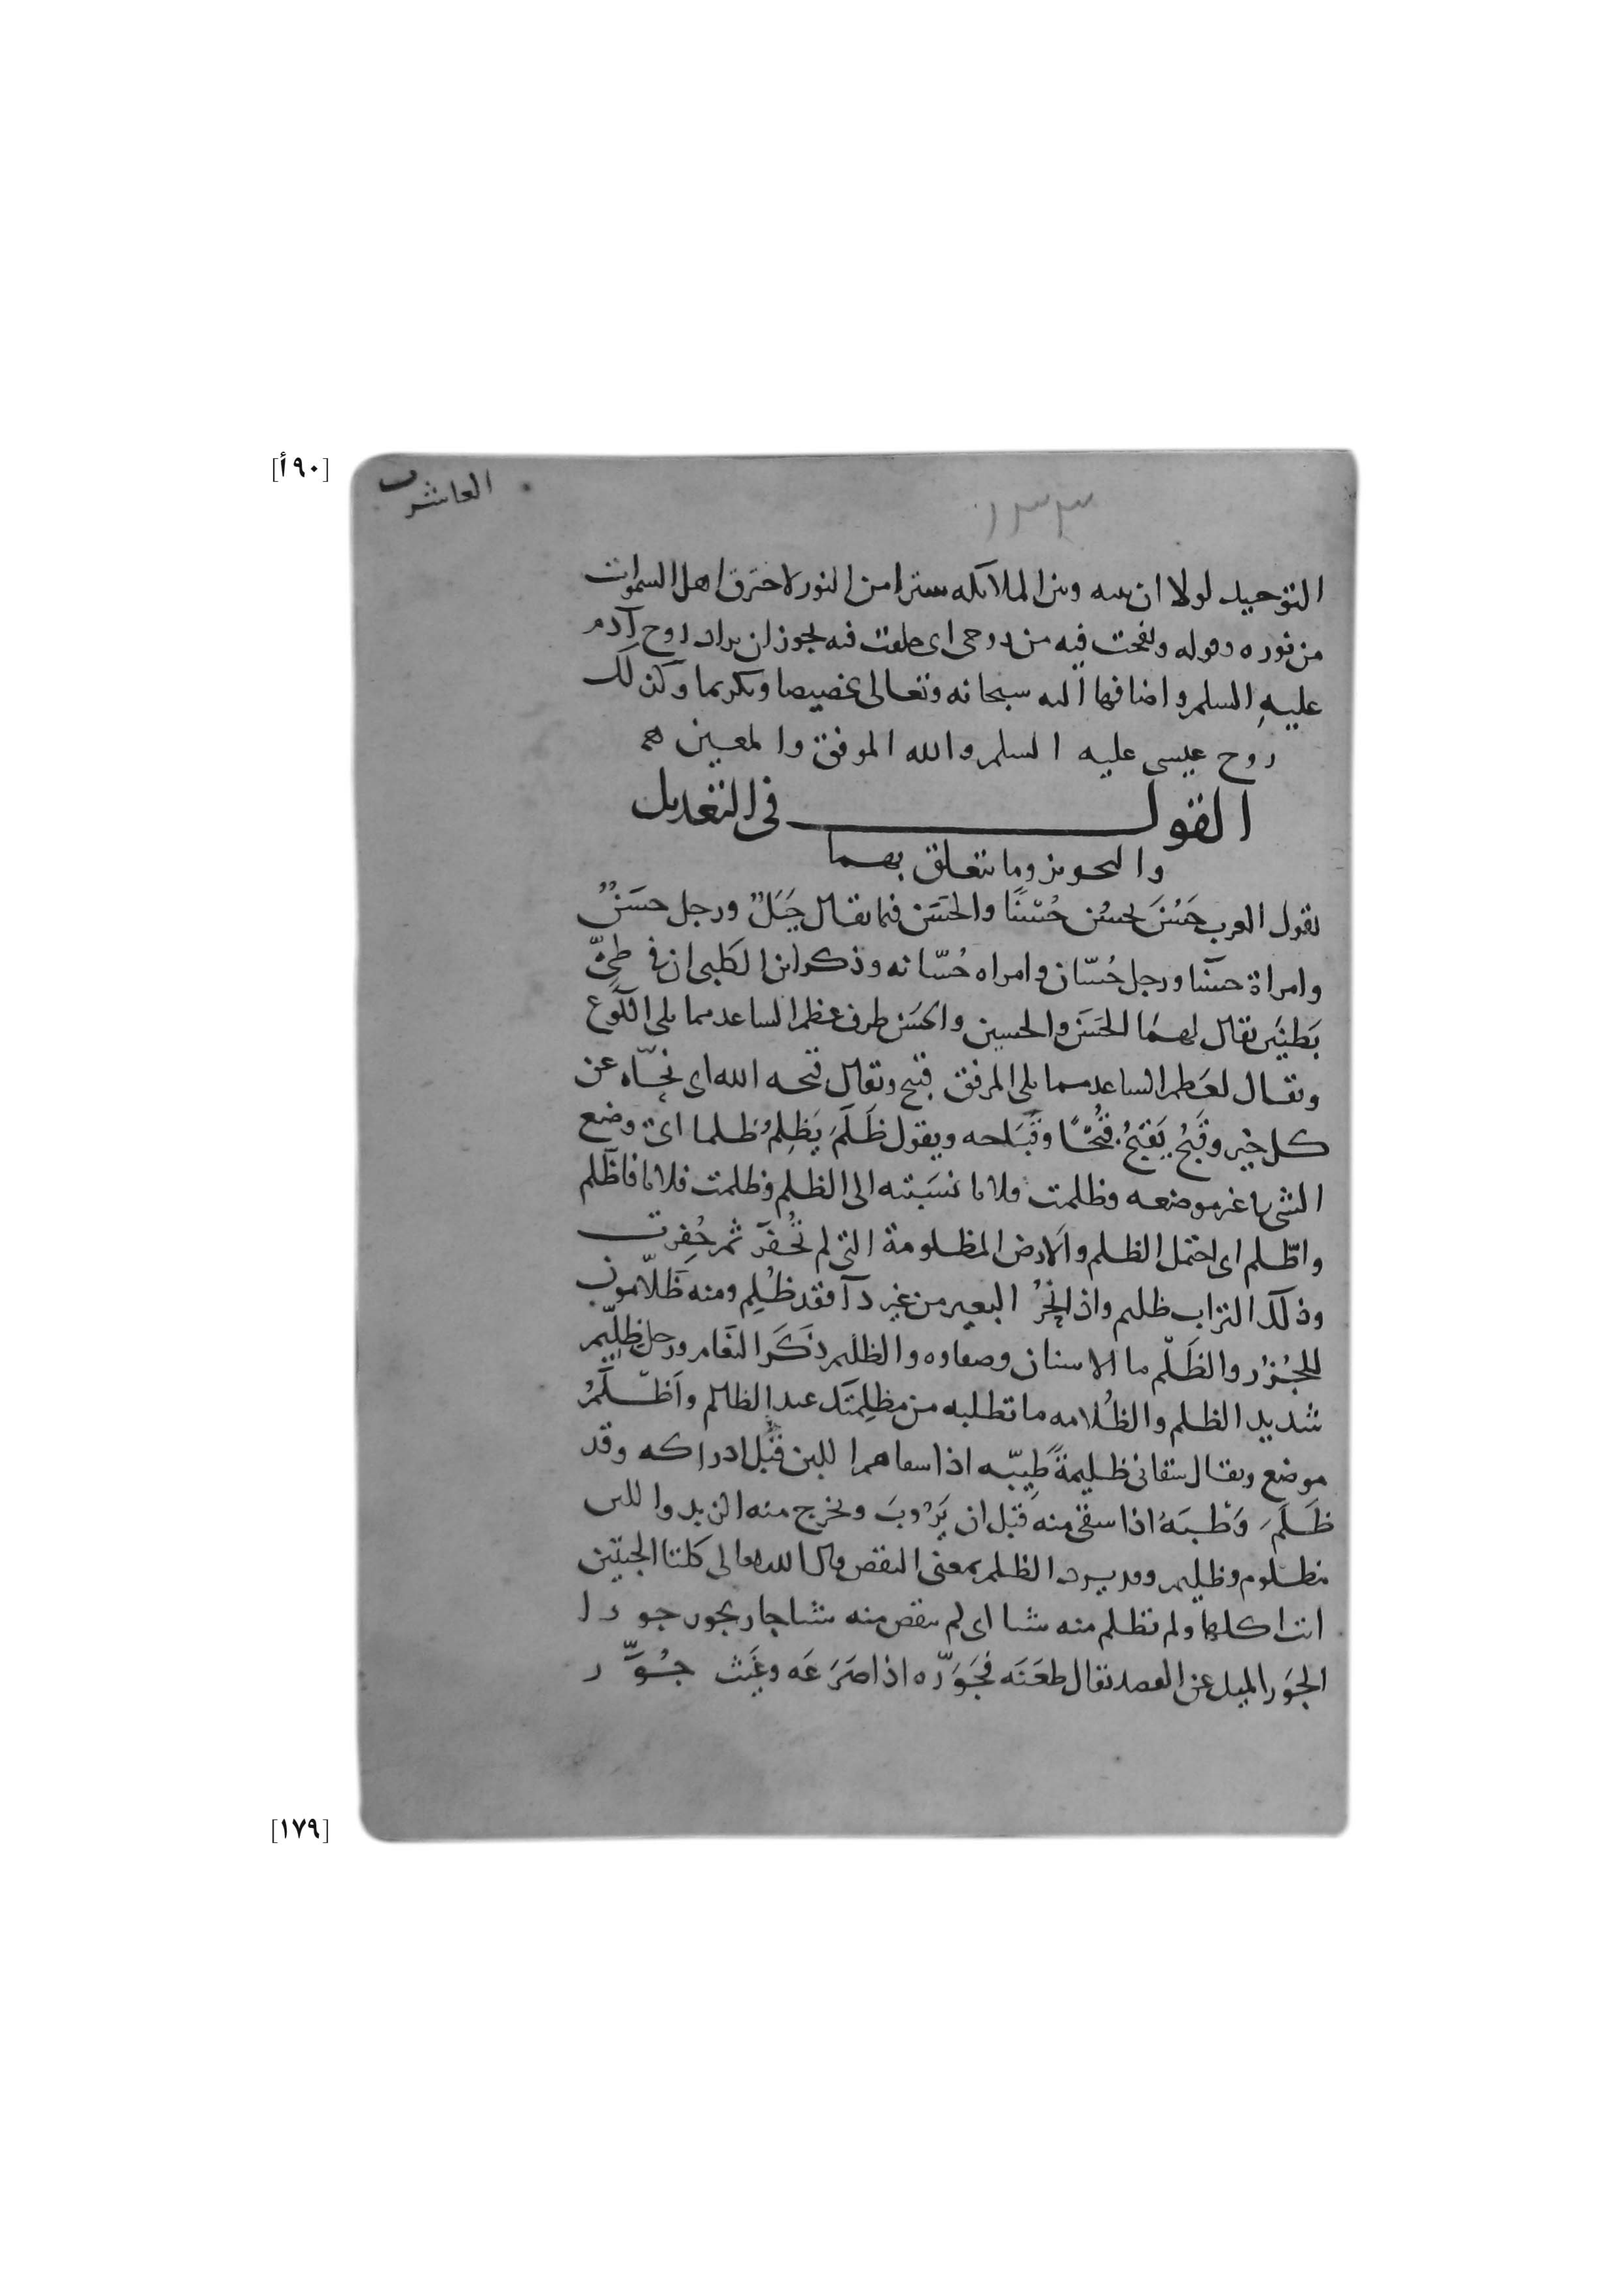 [٩٠أ]
العاشر
١٣٣
التوحيد لولا ان بينه وبين الملائكة سترا من النور لاحترق اهل السموات
من نوره وقوله ونفخت فيه من روحى اى خلقت فيه يجوز ان يراد روح آدم
عليه السلم واضافها اليه سبحانه وتعالى تخصيصا وتكريما وكذلك
روح عيسى عليه السلم والله الموفق والمعين
القول فى التعديل
والتجويز وما يتعلق بهما
تقول العرب حَسُنَ يحسُن حُسْنًا والحَسَن فيما يقال جَبَلٌ ورجل حسَنٌ
وامراة حسنآ ورجل حُسّان وامراه حُسّانه وذكر ابن الكلبى ان فى طيّ
بَطنَين يقال لهما الحَسَن والحسين والحسَن طرف عظم الساعد مما يلى الكوع
ويقال لعَظم الساعد مما يلى المرفق قبيح ويقال قبحه الله اى نحّاه عن
كل خير وقَبُح يَقبُحُ قُبْحًا وقَبَاحه ويقول ظَلَمَ يَظلِمُ ظلما اى وضع
الشى غير موضعه وظلمت فلانا نسَبته الى الظلم وظلمت فلانا فاظّلم
واطّلم اى احتمل الظلم والارض المظلومة التى لم تُحفَر ثم حُفِرت
وذلك التراب ظليم واذا نُحِرُ البعير من غير دآ فقد ظُلِم ومنه ظَلّامون
للجُزُر والظَلْم ما الاسنان وصفاوه والظليم ذَكَر النعَام ورجل ظِلِّيم
شديد الظلم والظُلامه ما تطلبه من مظلِمتك عند الظالم وأَظْلَمُ
موضع ويقال سقانى ظليمةً طيّبه اذا سقاهم اللبن قَبْل ادراكه وقد
ظَلَمَ وَطْبَهُ اذا سقى منه قَبْل ان يَرُوبَ ويخرج منه الزبد واللبن
مظلوم وظليم وقد يرد الظلم بمعنى النقص قال الله تعالى كلتا الجنتين
اتت اكلها ولم تظلم منه شيا اى لم ينقص منه شيا جار يجور جورا
الجَور الميل عن القصد يقال طعَنَه فجَوَّره اذا صَرَعَه وغَيث جُوَّر
[١٧٩]